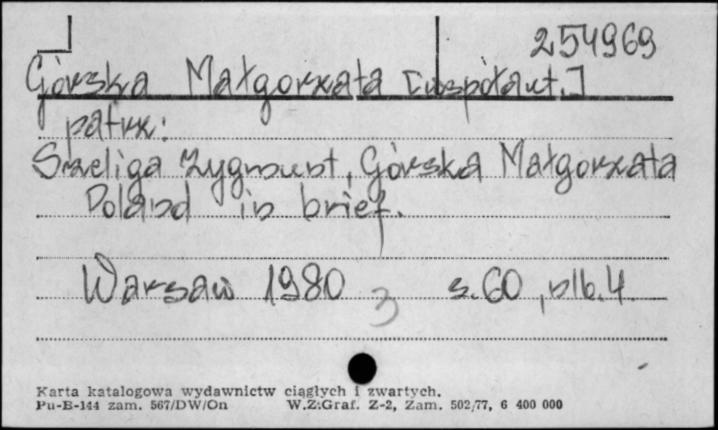 254969
Górska Małgorzata [współaut.]
patrz:
Szeliga Zygmunt, Górska Małgorzata
Poland in brief.
Warsaw 1980 s. 60, nlb. 4
3
Karta katalogowa wydawnictw ciągłych i zwartych.
Pu-B-144 zam. 567/DW/On W.Z.Graf. Z-2, Zam. 502/77, 6 400 000